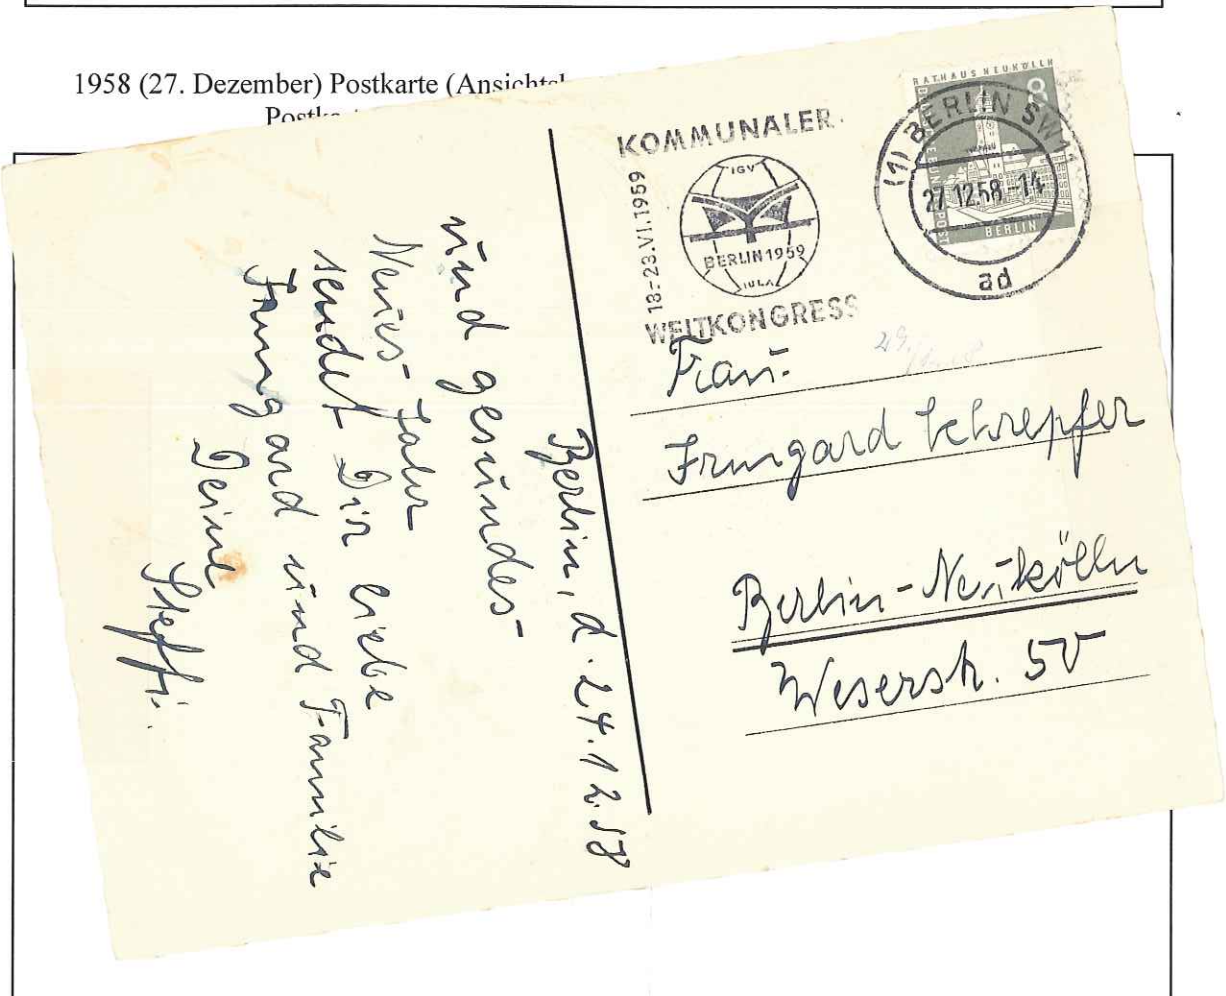 1958 (27. Dezember) Postkarte (Ansichtsk
Postka
KOMMUNALER
18.-23.VI.1959
IGV
BERLIN 1959
IULA
WELTKONGRESS
RATHAUS NEUKÖLLN
8
DEUTSCHE BUNDESPOST
BERLIN
(1) BERLIN SW
27.12.58.-14
ad
Frau
Irmgard Schrepfer
Berlin-Neukölln
Weserstr. 50
Berlin, d. 27.12.58
und gesundes-
Neues-Jahr
sendet Dir liebe
Irmgard und Familie
Deine
Steffi.